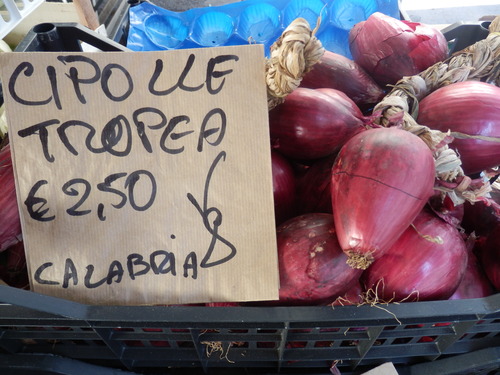 CIPOLLE
TROPEA
€ 2,50
CALABRIA